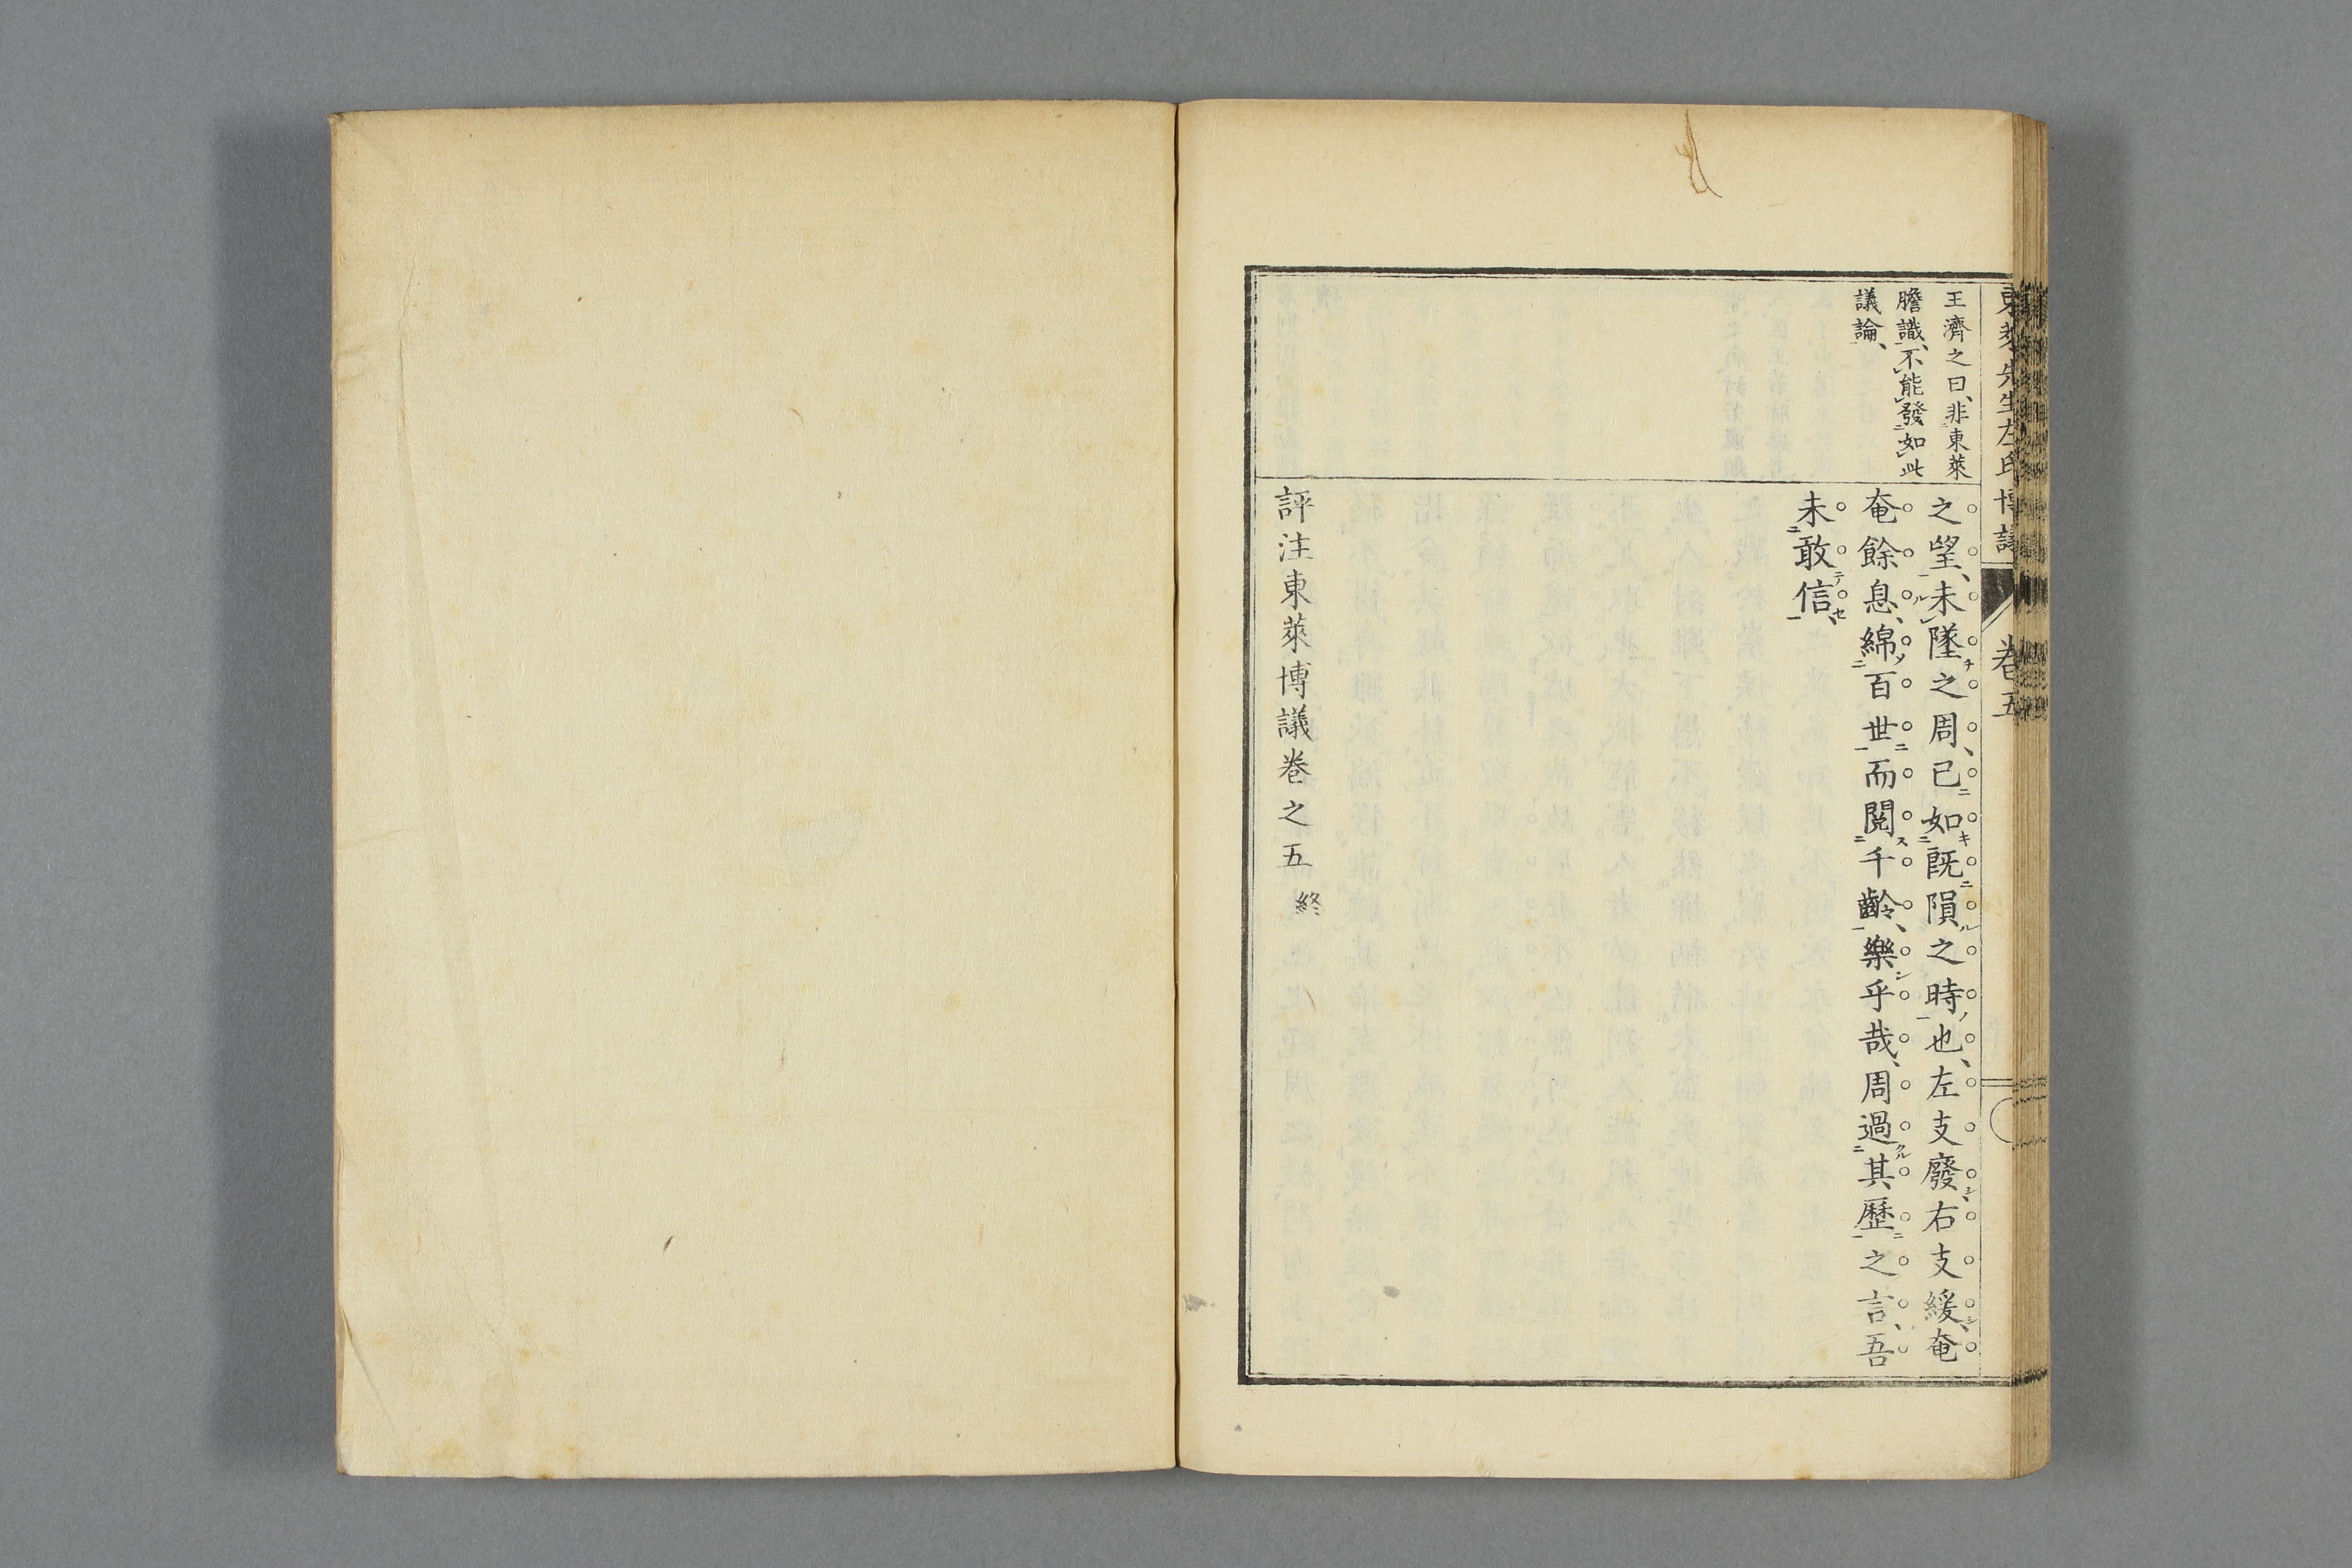 東萊先生左氏博議 卷五
王濟之曰、非東萊
膽識、不能發如此
議論、
之望、未墜之周、已如既隕之時也、左支廢右支緩、奄
奄餘息、綿百世而閱千齡、樂乎哉、周過其歷之言、吾
未敢信、
評注東萊博議卷之五 終